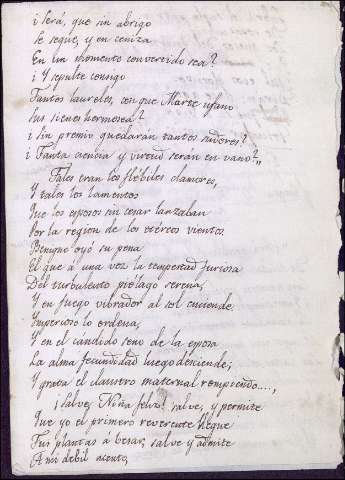 ¿Será, que sin abrigo
Se seque, y en ceniza
En un momento convertido sea?
¿Y sepulte consigo
Tantos laureles, con que Marte ufano
Sus sienes hermoseà?
¿Sin premio quedarán tantos sudores?
¿Tanta ciencia y virtud serán en vano?„
Tales eran los flébiles clamores,
Y tales los lamentos
Que los esposos sin cesar lanzaban
Por la region de los etéreos vientos.
Benigno oyó su pena
El que á una voz la tempestad furiosa
Del turbulento piélago serena,
Y en fuego vibrador al sol enciende.
Imperioso lo ordena,
Y en el candido seno de la esposa
La alma fecundidad luego desciende;
Y grata el claustro maternal rompiendo....,
¡Salve, Niña feliz! salve, y permite
Que yo el primero reverente llegue
Tus plantas á besar; salve y admite
A mi debil acento,